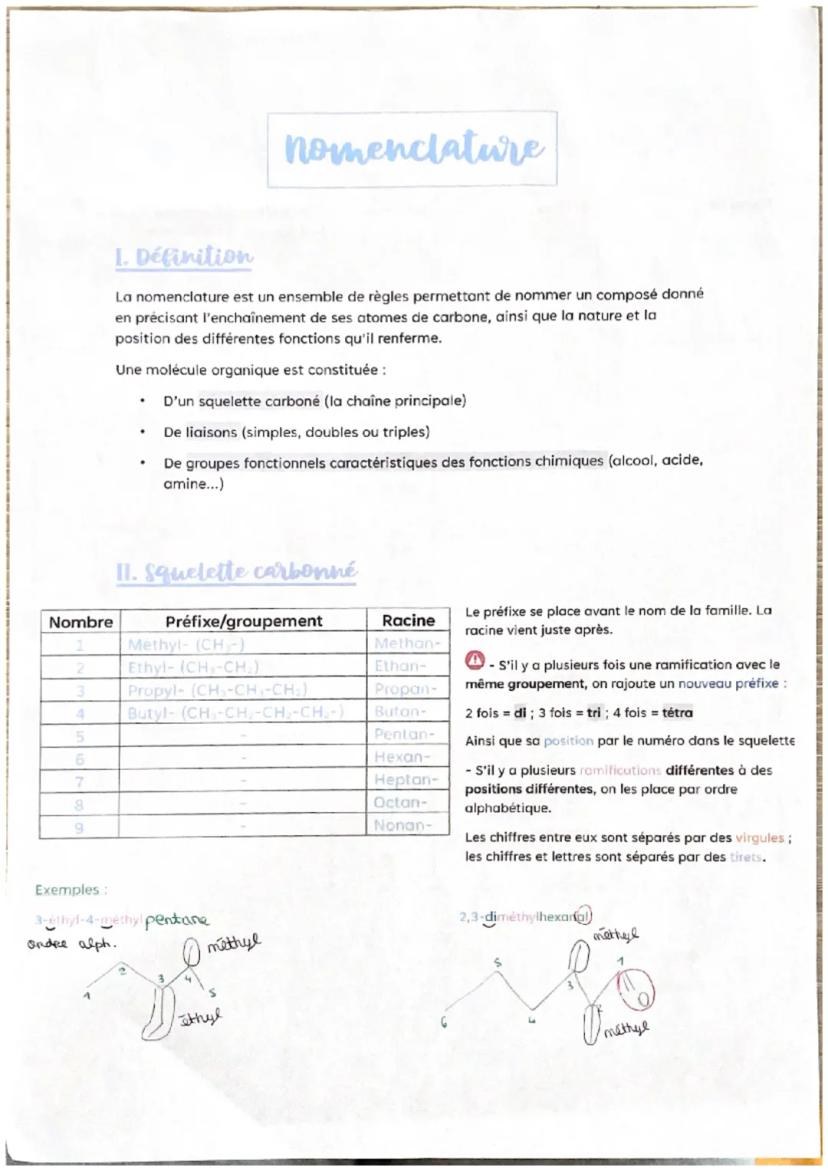 nomenclature
I. Définition
La nomenclature est un ensemble de règles permettant de nommer un composé donné
en précisant l'enchaînement de ses atomes de carbone, ainsi que la nature et la
position des différentes fonctions qu'il renferme.
Une molécule organique est constituée :
• D'un squelette carboné (la chaîne principale)
• De liaisons (simples, doubles ou triples)
• De groupes fonctionnels caractéristiques des fonctions chimiques (alcool, acide,
amine...)
II. Squelette carbonné
Nombre Préfixe/groupement Racine
1 Méthyl- (CH₃-) Methan-
2 Ethyl- (CH₃-CH₂) Ethan-
3 Propyl- (CH₃-CH₂-CH₂) Propan-
4 Butyl- (CH₃-CH₂-CH₂-CH₂-) Butan-
5 - Pentan-
6 - Hexan-
7 - Heptan-
8 - Octan-
9 - Nonan-
Le préfixe se place avant le nom de la famille. La
racine vient juste après.
- S'il y a plusieurs fois une ramification avec le
même groupement, on rajoute un nouveau préfixe :
2 fois = di ; 3 fois = tri ; 4 fois = tétra
Ainsi que sa position par le numéro dans le squelette
- S'il y a plusieurs ramifications différentes à des
positions différentes, on les place par ordre
alphabétique.
Les chiffres entre eux sont séparés par des virgules ;
les chiffres et lettres sont séparés par des tirets.
Exemples :
3-éthyl-4-méthyl pentane
ordre alph.
méthyl
1 2 3 4 5
éthyl
2,3-diméthylhexanal
méthyl
6 5 4 3 2 1
O
méthyl